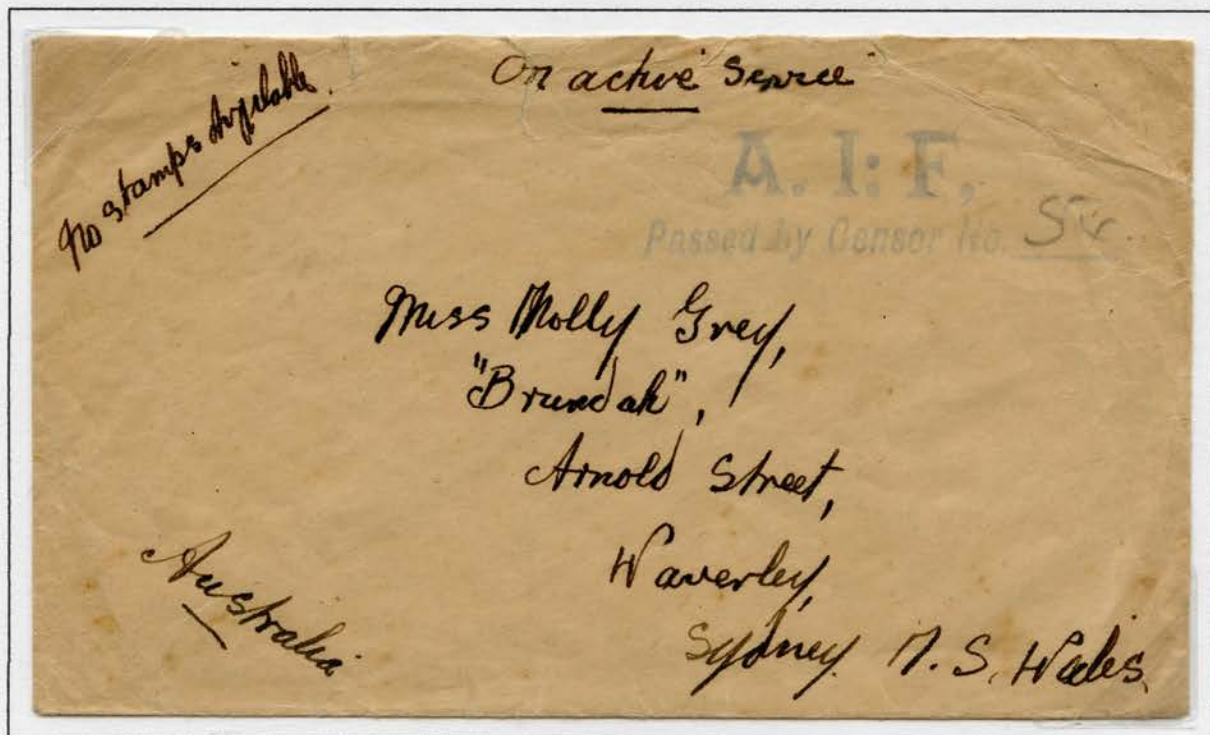 No stamps Available.
On active Service
A. I: F.
Passed by Censor No.
Miss Molly Grey,
"Brundah",
Arnold Street,
Waverley,
Sydney. N. S. Wales.
Australia